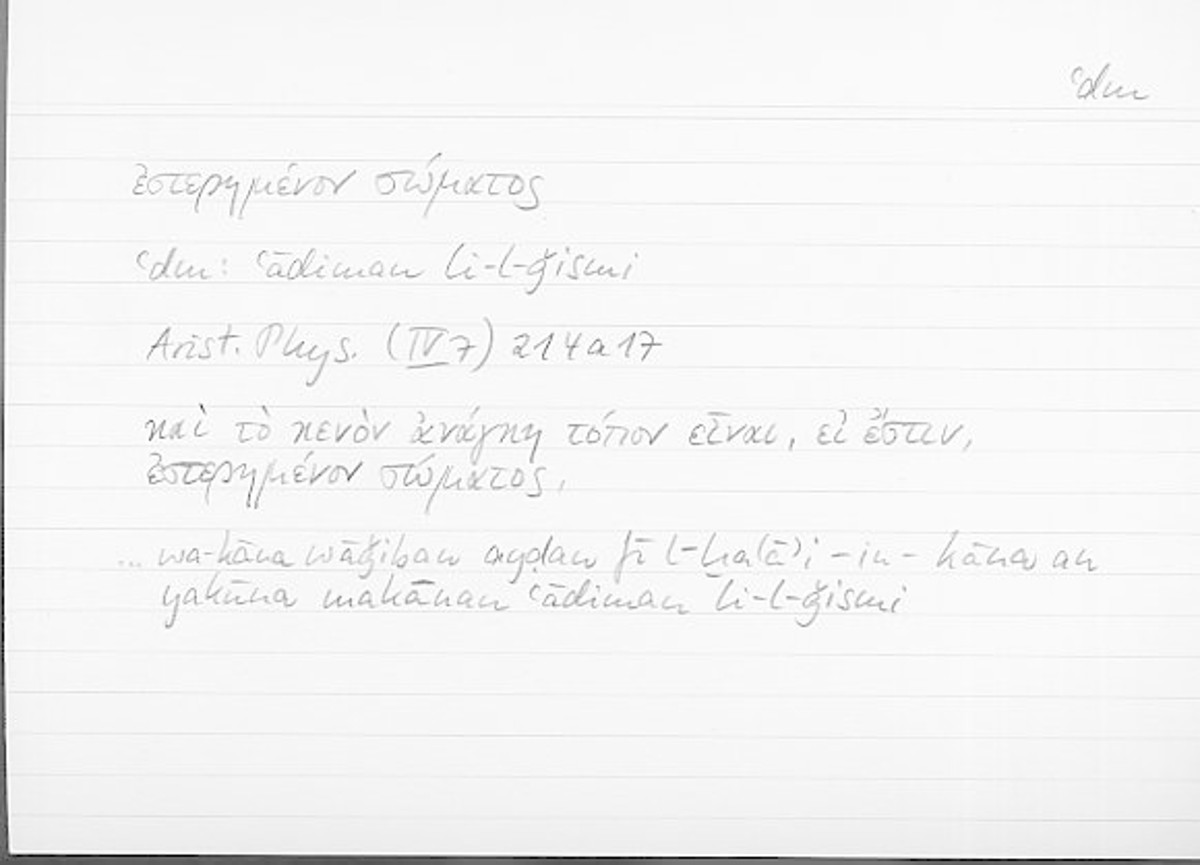 ʿdm
ἐστερημένον σώματος
ʿdm: ʿādiman li-l-ǧismi
Arist. Phys. (IV 7) 214a17
καὶ τὸ κενὸν ἀνάγκη τόπον εἶναι, εἰ ἔστιν,
ἐστερημένον σώματος,
... wa-kāna wāǧiban ayḍan fī l-ḫalāʾi -in- kāna an
yakūna makānan ʿādiman li-l-ǧismi